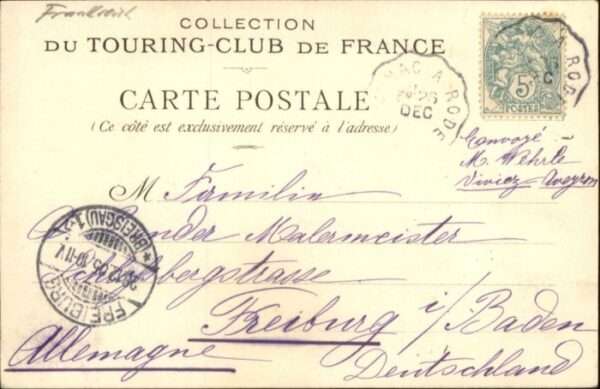 Frankreich
COLLECTION
DU TOURING-CLUB DE FRANCE
CARTE POSTALE
(Ce côté est exclusivement réservé à l'adresse)
A RODE
26
DEC
5
POSTES
A ROD
Envoyé
M. Wehrle
Viviez Aveyron
M Familie
Malermeister
Schlossbergstrasse
Freiburg i/Baden
Allemagne
Deutschland
FREIBURG
(BREISGAU) 1